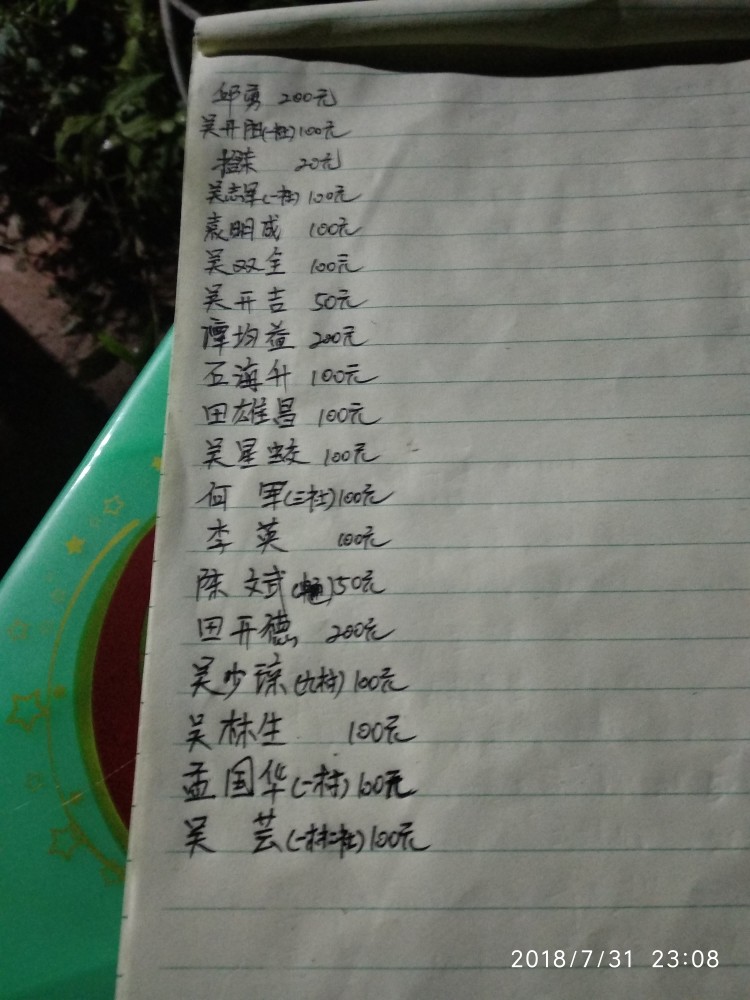 邱勇 200元
吴开国(一社)100元
20元
吴志军(一社)100元
袁明成 100元
吴双全 100元
吴开吉 50元
谭均益 200元
石海升 100元
田雄昌 100元
吴星蛟 100元
何 军(三社)100元
李 英 100元
陈文武 50元
田开德 200元
吴少琼(九村)100元
吴林生 100元
孟国华(一村)100元
吴 芸(一村二社)100元
2018/7/31 23:08